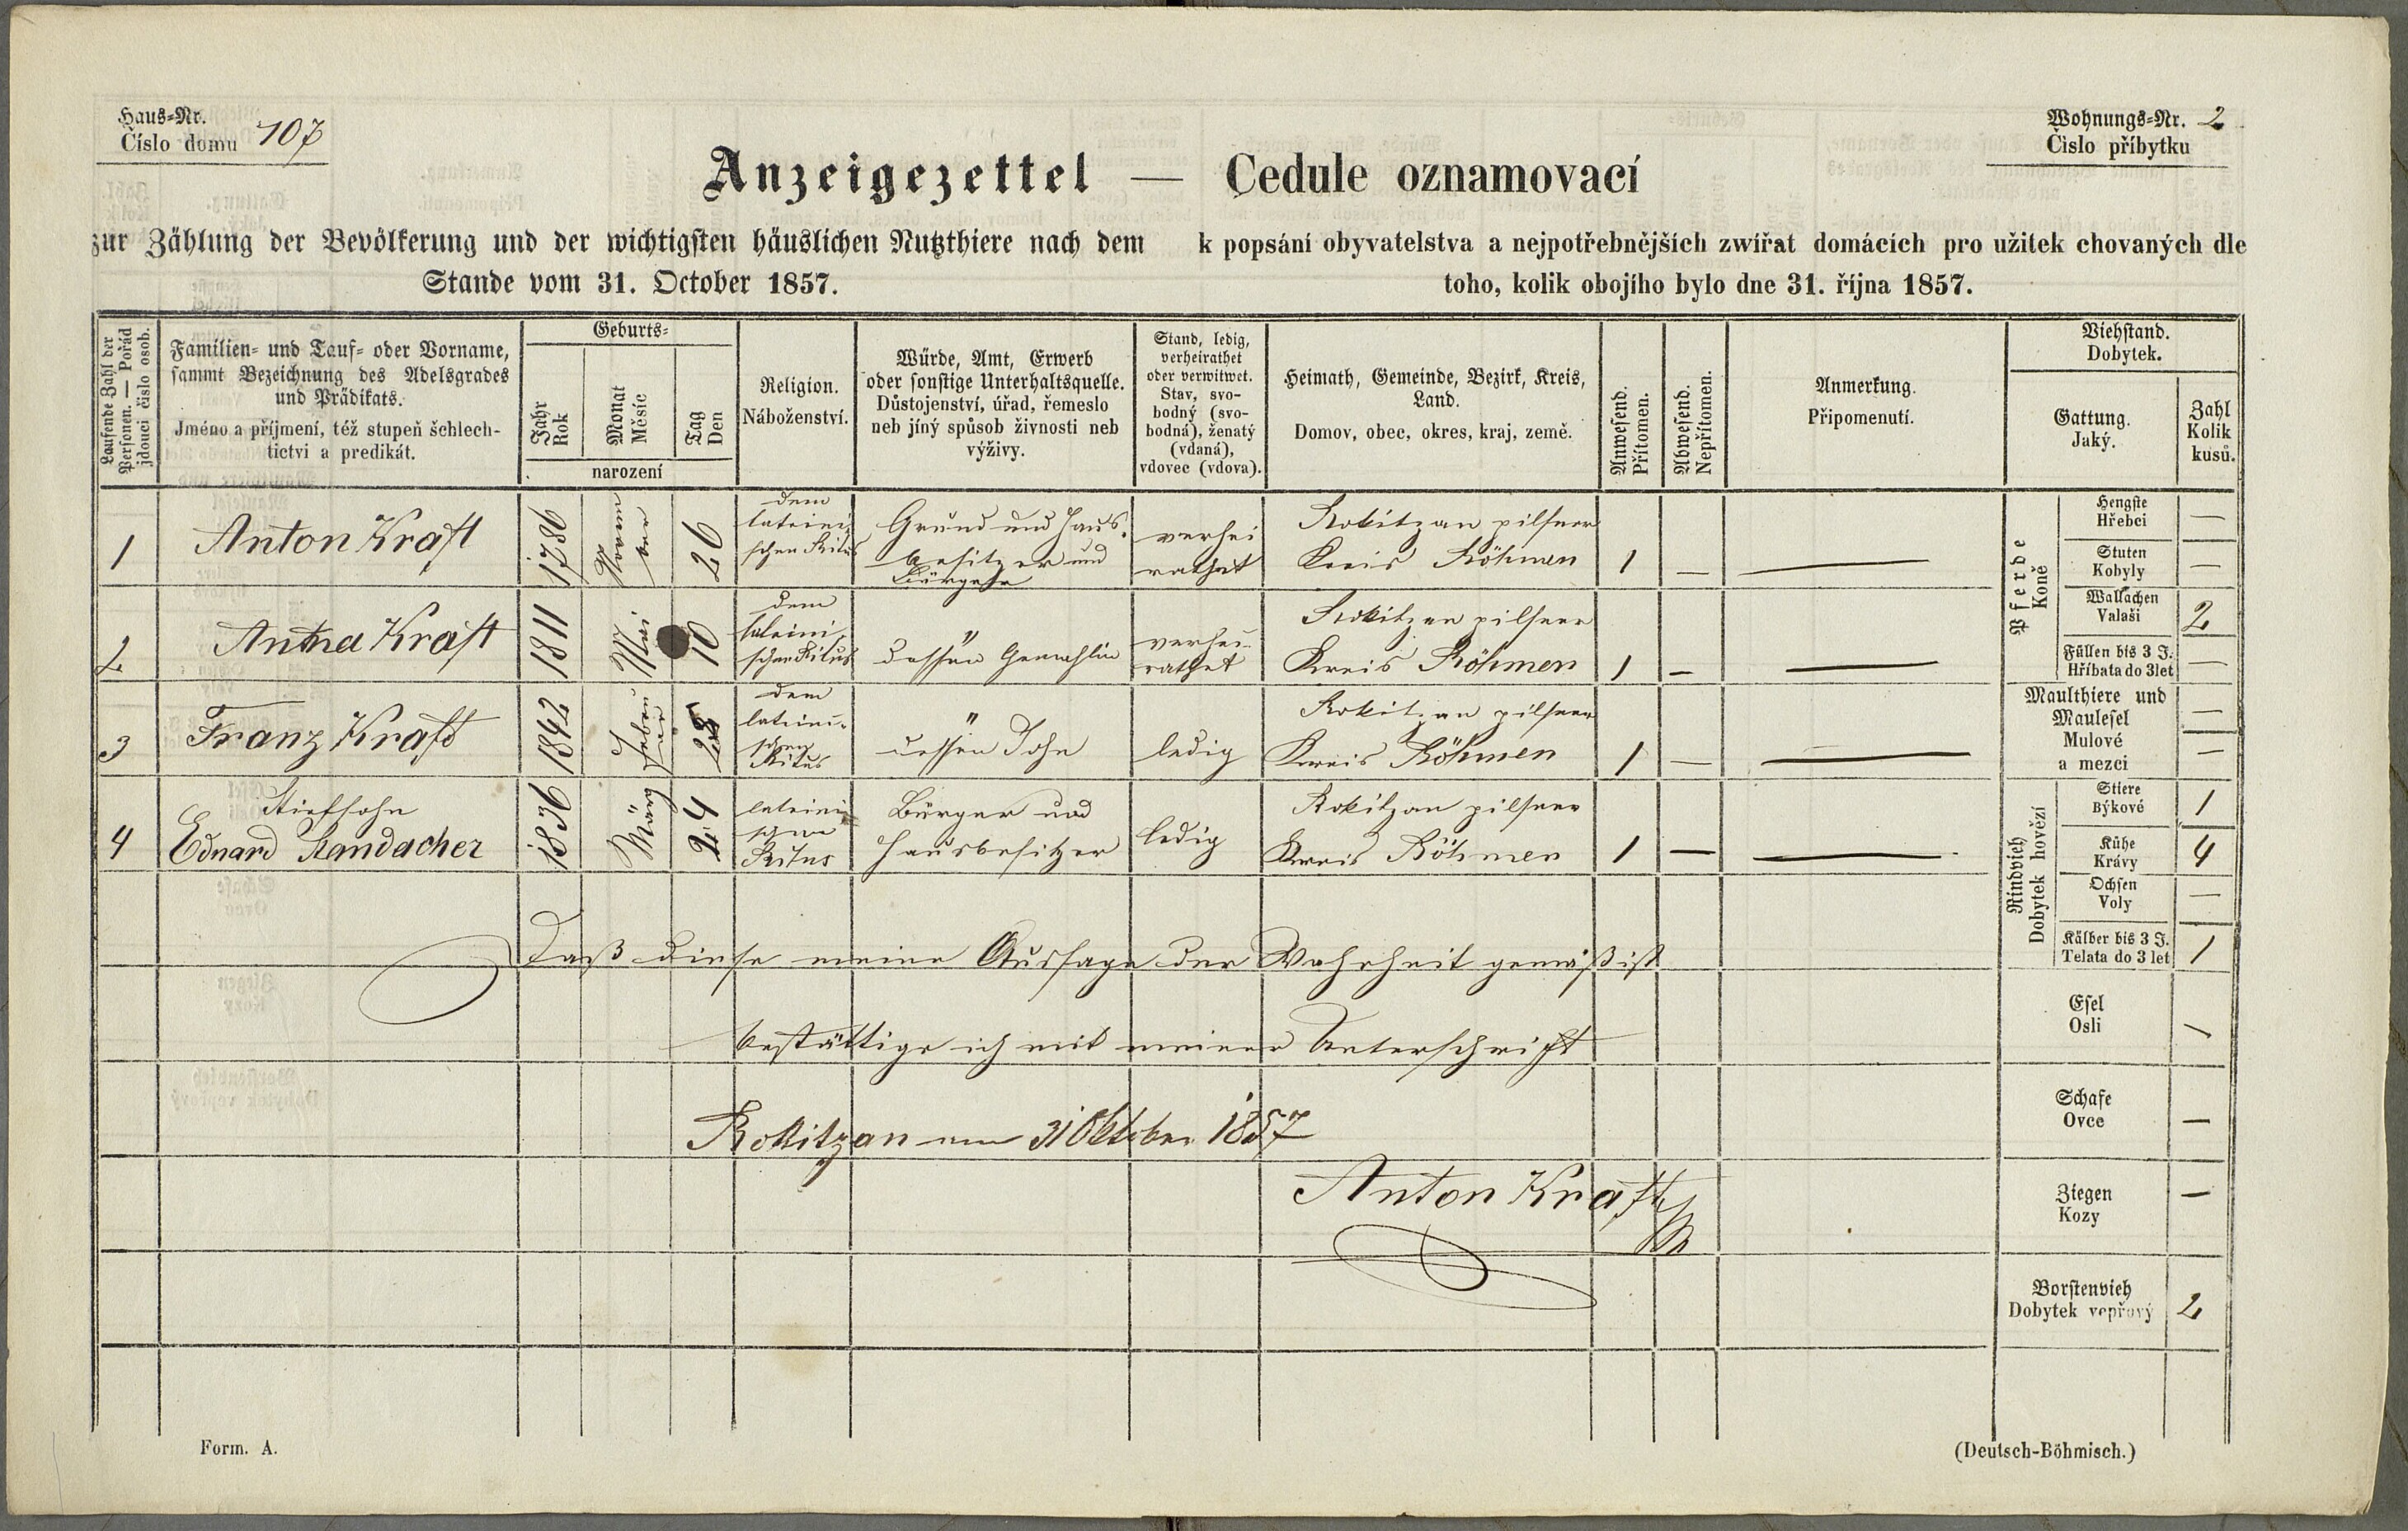 Haus-Nr.
Číslo domu 107
Wohnungs-Nr. 2
Číslo příbytku
Anzeigezettel — Cedule oznamovací
zur Zählung der Bevölkerung und der wichtigsten häuslichen Nutzthiere nach dem
Stande vom 31. October 1857.
k popsání obyvatelstva a nejpotřebnějších zwířat domácích pro užitek chovaných dle
toho, kolik obojího bylo dne 31. října 1857.
Laufende Zahl der
Personen. — Pořád
jdoucí číslo osob.
Familien- und Tauf- oder Vorname,
sammt Bezeichnung des Adelsgrades
und Prädikats.
Jméno a příjmení, též stupeň šchlech-
tictvi a predikát.
Geburts-
Jahr
Rok
Monat
Měsíc
Tag
Den
narození
Religion.
Náboženství.
Würde, Amt, Erwerb
oder sonstige Unterhaltsquelle.
Důstojenství, úřad, řemeslo
neb jíný spůsob živnosti neb
výživy.
Stand, ledig,
verheirathet
oder verwitwet.
Stav, svo-
bodný (svo-
bodná), ženatý
(vdaná),
vdovec (vdova).
Heimath, Gemeinde, Bezirk, Kreis,
Land.
Domov, obec, okres, kraj, země.
Anwesend.
Přítomen.
Abwesend.
Nepřítomen.
Anmerkung.
Připomenutí.
Viehstand.
Dobytek.
Gattung.
Jaký.
Zahl
Kolik
kusů.
1 Anton Kraft 1786 November 26 dem lateinischen Ritus Grund und Haus.besitzer und Bürger verheirathet Rokitzan pilsner Kreis Böhmen 1 — —
2 Anna Kraft 1811 Mai 10 dem lateinischen Ritus dessen Gemahlin verhei-rathet Rokitzan pilsner Kreis Böhmen 1 — —
3 Franz Kraft 1842 dem lateini-schen Ritus dessen Sohn ledig Rokitzan pilsner Kreis Böhmen 1 — —
4 Stiefsohn Eduard 1836 März 24 lateinischen Ritus Bürger und Hausbesitzer ledig Rokitzan pilsner Kreis Böhmen 1 — —
Daß diese meine Aussage der Wahrheit gemäß ist
bestättige ich mit meiner Unterschrift
Rokitzan am 31 Oktober 1857
Anton Kraft
Pferde
Koně
Hengste
Hřebci —
Stuten
Kobyly —
Wallachen
Valaši 2
Füllen bis 3 J.
Hříbata do 3 let —
Maulthiere und
Maulesel —
Mulové
a mezci —
Rindvieh
Dobytek hovězí
Stiere
Býkové 1
Kühe
Krávy 4
Ochsen
Voly —
Kälber bis 3 J.
Telata do 3 let 1
Esel
Osli —
Schafe
Ovce —
Ziegen
Kozy —
Borstenvieh
Dobytek vepřový 2
Form. A.
(Deutsch-Böhmisch.)